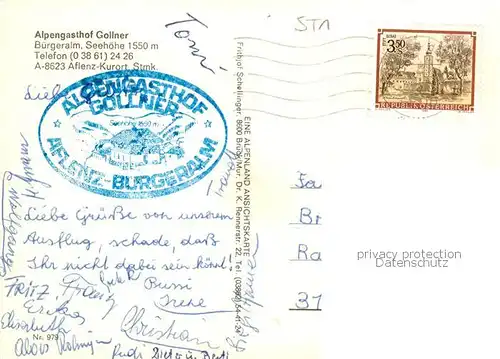 Alpengasthof Gollner
Bürgeralm, Seehöhe 1550 m
Telefon (0 38 61) 24 26
A-8623 Aflenz-Kurort, Stmk.
STM
3.50
REPUBLIK ÖSTERREICH
Toni
Liebe
ALPENGASTHOF
GOLLNER
Seehöhe 1550 m
AFLENZ-BÜRGERALM
Liebe Grüße von unserem
Ausflug, schade, daß
Ihr nicht dabei sein könnt!
Bussi
Irene
FRITZ
Franz
Erika
Elisabeth
Christian
Alois
Rudi
Nr. 979
EINE ALPENLAND ANSICHTSKARTE
Frithjof Schellinger, 8600 Bruck/Mur, Dr. K. Rennerstr. 22, Tel.
Fa
Br
Ra
31
privacy protection
Datenschutz